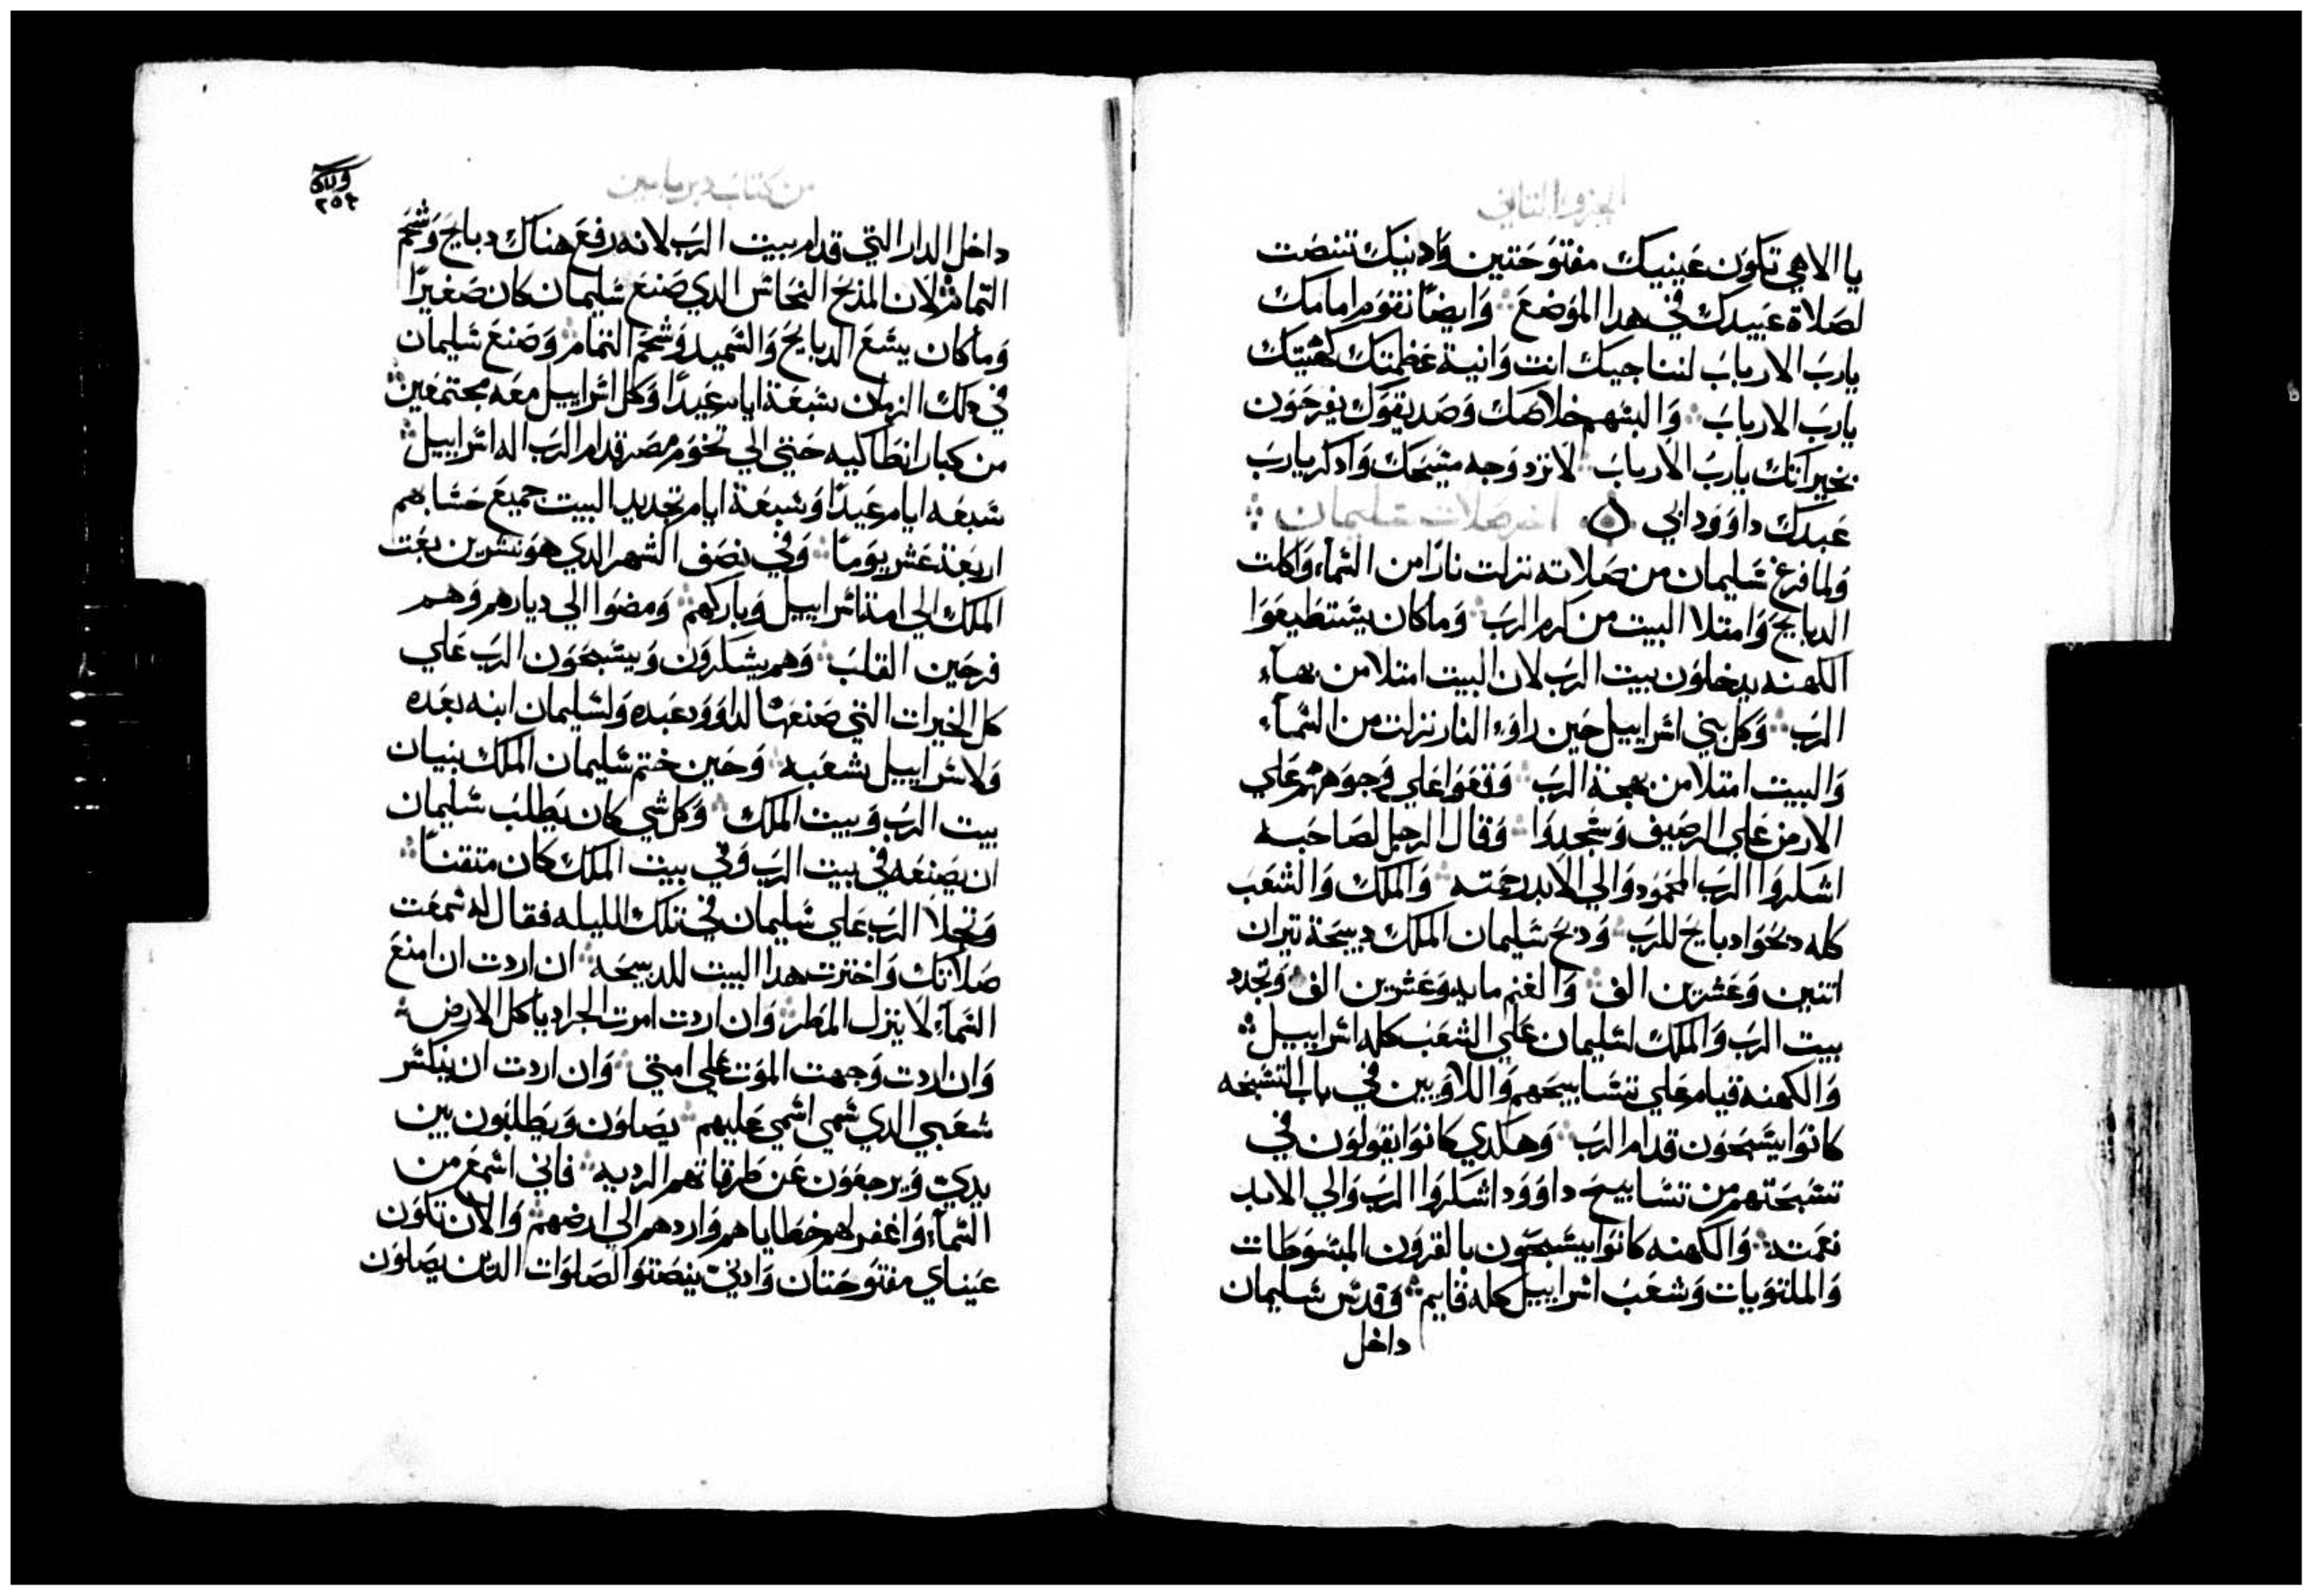 الجزو التاني
يا الاهي تكون عينيك مفتوحتين وادنيك تنصت
لصلاة عبيدك في هدا الموضع وايضًا نقوم امامك
يارب الارباب لننا جيك انت وانية عظمتك كهنتك
يارب الارباب والبسهم خلاصك وصديقوك يفرحون
بخيراتك يارب الارباب لا ترد وجه مسيحك وادكر يارب
عبدك داوود ابي اخر صلات سليمان
ولما فرغ سليمان من صلاته نزلت نارًا من السمآء واكلت
الدبايح وامتلا البيت من كرم الرب وما كان يستطيعوا
الكهنه يدخلون بيت الرب لان البيت امتلا من بهآء
الرب وكل بني اسراييل حين راوء النار نزلت من السمآء
والبيت امتلا من بهجة الرب وقعوا علي وجوههم علي
الارض علي الرصيف وسجدوا وقال الرجل لصاحبه
اشكروا الرب المحمود والي الابد رحمته والملك والشعب
كله دبحوا دبايح للرب ودبح سليمان الملك دبيحة تيران
اتنين وعشرين الف والغنم مايه وعشرين الف وتجدد
بيت الرب والملك لسليمان علي الشعب كله اسراييل
والكهنه قيام علي تسابيحهم واللاويين في باب التسبحه
كانوا يسبحون قدام الرب وهكدي كانوا يقولون في
تسبحتهم من تسابيح داوود اشكروا الرب والي الابد
نعمته والكهنه كانوا يسبحون بالقرون المبسوطات
والملتويات وشعب اسراييل كله قايم وقدس سليمان
داخل
من كتاب دبريامين
٢٥٤
داخل الدار التي قدام بيت الرب لانه رفع هناك دبايح وشحم
التمام لان المذبح النحاس الدي صنع سليمان كان صغيرًا
وما كان يسع الدبايح والسميد وشحم التمام وصنع سليمان
في دلك الزمان سبعة ايام عيدًا وكل اسراييل معه مجتمعين
من كبار انطاكيه حتي الي تخوم مصر قدام الرب اله اسراييل
سبعه ايام عيدًا وسبعة ايام تجديد البيت جميع حسابهم
اربعة عشر يومًا وفي نصف الشهر الدي هو تشرين بعت
الملك الي امة اسراييل وباركهم ومضوا الي ديارهم وهم
فرحين القلب وهم يشكرون ويسبحون الرب علي
كل الخيرات التي صنعها لداوود عبده ولسليمان ابنه بعده
ولاسراييل شعبه وحين ختم سليمان الملك بنيان
بيت الرب وبيت الملك وكل شي كان يطلب سليمان
ان يصنعه في بيت الرب وفي بيت الملك كان متقنًا
وتجلا الرب علي سليمان في تلك الليله فقال له سمعت
صلاتك واخترت هدا البيت للدبيحه ان اردت ان امنع
السمآء لا ينزل المطر وان اردت امرت الجراد ياكل الارض
وان اردت وجهت الموت علي امتي وان اردت ان ينكسر
شعبي الدي سمي اسمي عليهم يصلون ويطلبون بين
يدي ويرجعون عن طرقاتهم الرديه فاني اسمع من
السمآء واغفر لهم خطاياهم واردهم الي ارضهم والان تكون
عيناي مفتوحتان وادني ينصتوا لصلوات الدين يصلون